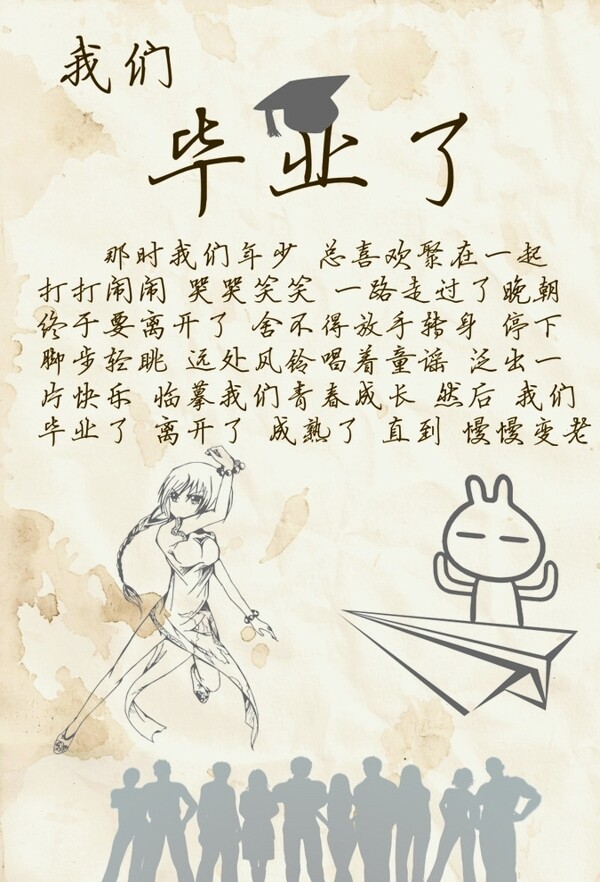 我们
毕业了
那时我们年少 总喜欢聚在一起
打打闹闹 哭哭笑笑 一路走过了晚朝
终于要离开了 舍不得放手转身 停下
脚步轻眺 远处风铃唱着童谣 泛出一
片快乐 临摹我们青春成长 然后 我们
毕业了 离开了 成熟了 直到 慢慢变老